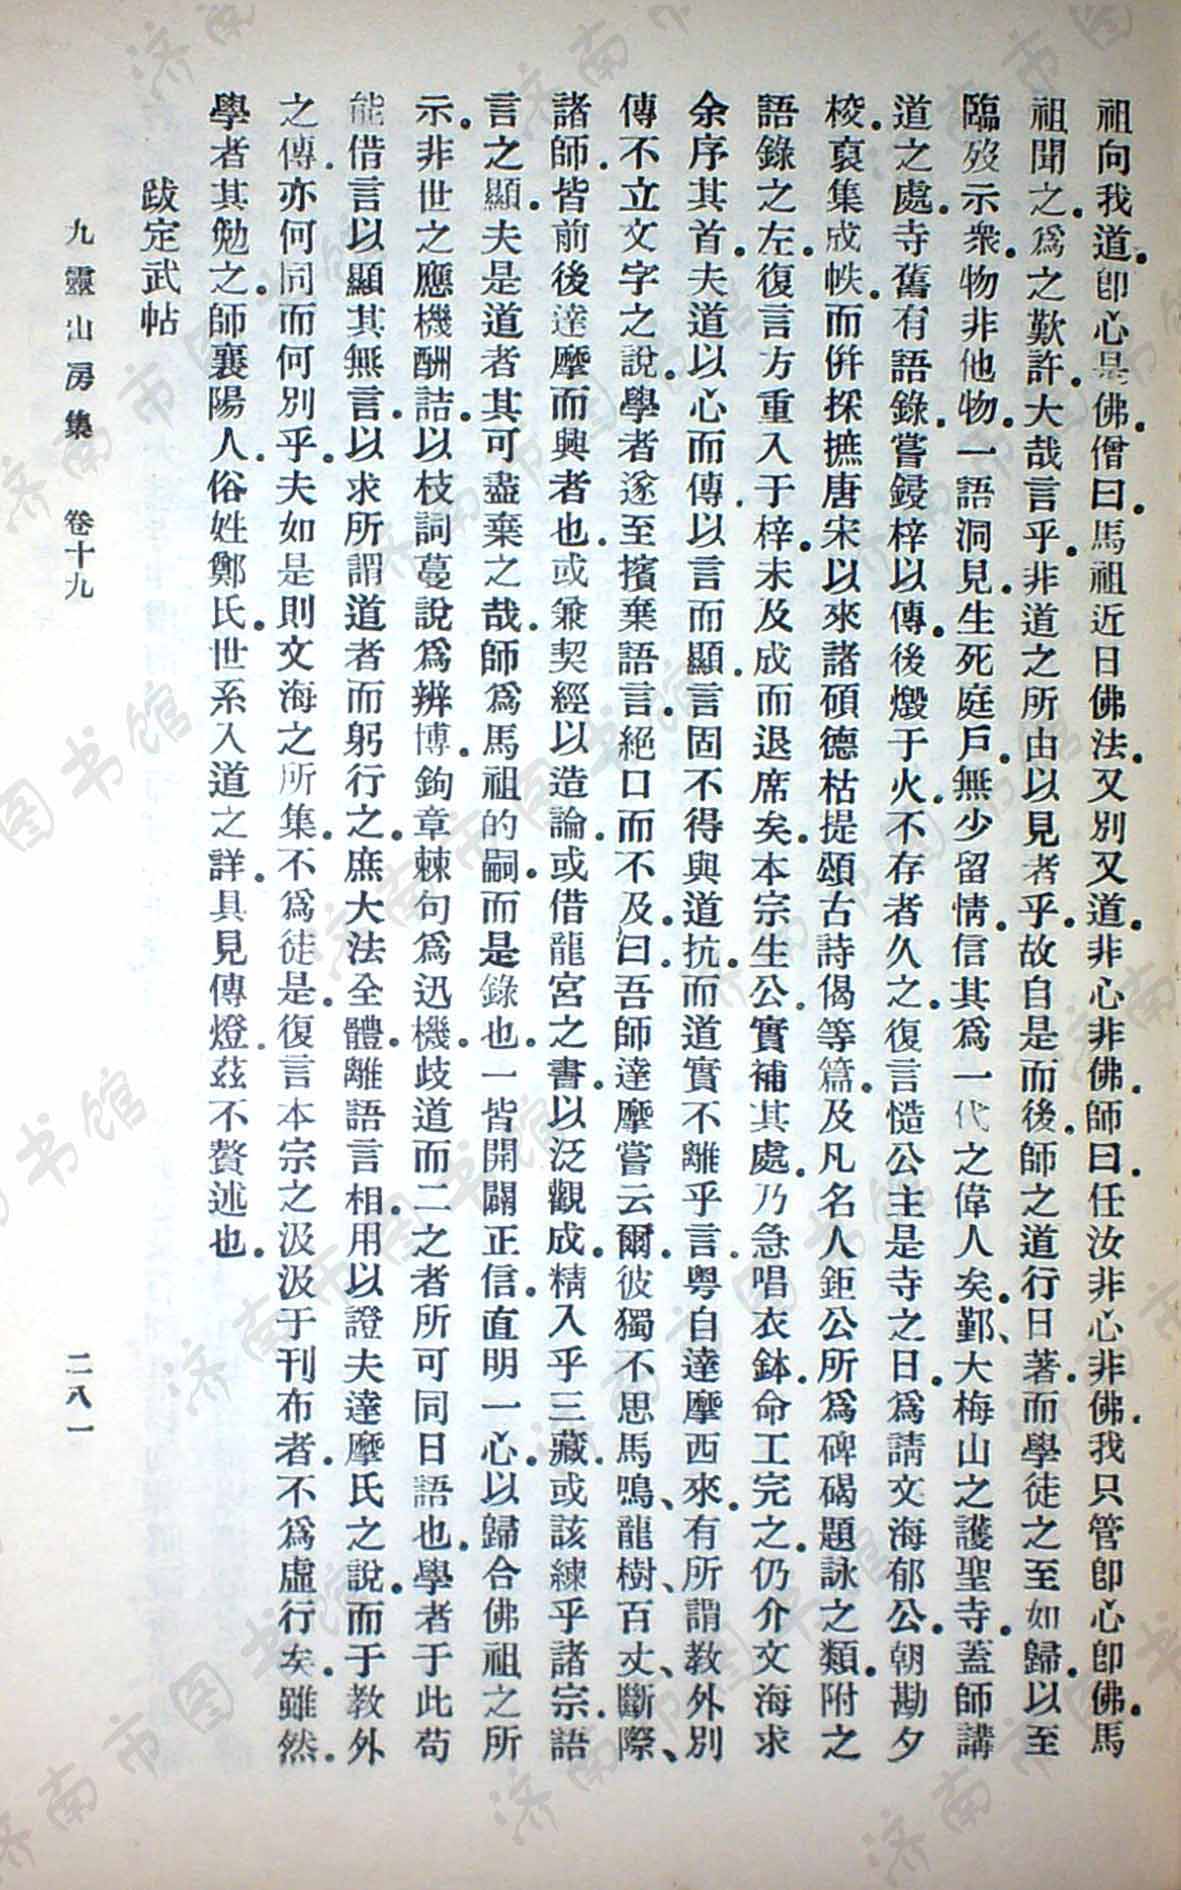 祖向我道。卽心是佛。僧曰。馬祖近日佛法。又別又道。非心非佛。師曰。任汝非心非佛。我只管卽心卽佛。馬
祖聞之。爲之歎許。大哉言乎。非道之所由以見者乎。故自是而後。師之道行日著。而學徒之至如歸。以至
臨歿示衆。物非他物。一語洞見。生死庭戶。無少留情。信其爲一代之偉人矣。鄞、大梅山之護聖寺。蓋師講
道之處。寺舊有語錄。嘗鋟梓以傳。後燬于火。不存者久之。復言慥公主是寺之日。爲請文海郁公。朝勘夕
校。裒集成帙。而倂採摭唐宋以來諸碩德枯提頌古詩偈等篇。及凡名人鉅公所爲碑碣題詠之類。附之
語錄之左。復言方重入于梓。未及成而退席矣。本宗生公。實補其處。乃急唱衣鉢。命工完之。仍介文海求
余序其首。夫道以心而傳。以言而顯。言固不得與道抗。而道實不離乎言。粵自達摩西來。有所謂教外別
傳不立文字之說。學者遂至擯棄語言。絕口而不及。曰。吾師達摩嘗云爾。彼獨不思馬鳴、龍樹、百丈、斷際、
諸師。皆前後達摩而興者也。或兼契經以造論。或借龍宮之書。以泛觀成。精入乎三藏。或該練乎諸宗。語
言之顯。夫是道者。其可盡棄之哉。師爲馬祖的嗣。而是錄也。一皆開闢正信。直明一心。以歸合佛祖之所
示。非世之應機酬詰。以枝詞蔓說爲辨博。鉤章棘句爲迅機。歧道而二之者所可同日語也。學者于此苟
能借言以顯其無言。以求所謂道者而躬行之。庶大法全體。離語言相。用以證夫達摩氏之說。而于教外
之傳。亦何同而何別乎。夫如是則文海之所集。不爲徒是。復言本宗之汲汲于刊布者。不爲虛行矣。雖然。
學者其勉之。師襄陽人。俗姓鄭氏。世系入道之詳。具見傳燈。茲不贅述也。
跋定武帖
九靈山房集 卷十九 二八一
济南市图书馆